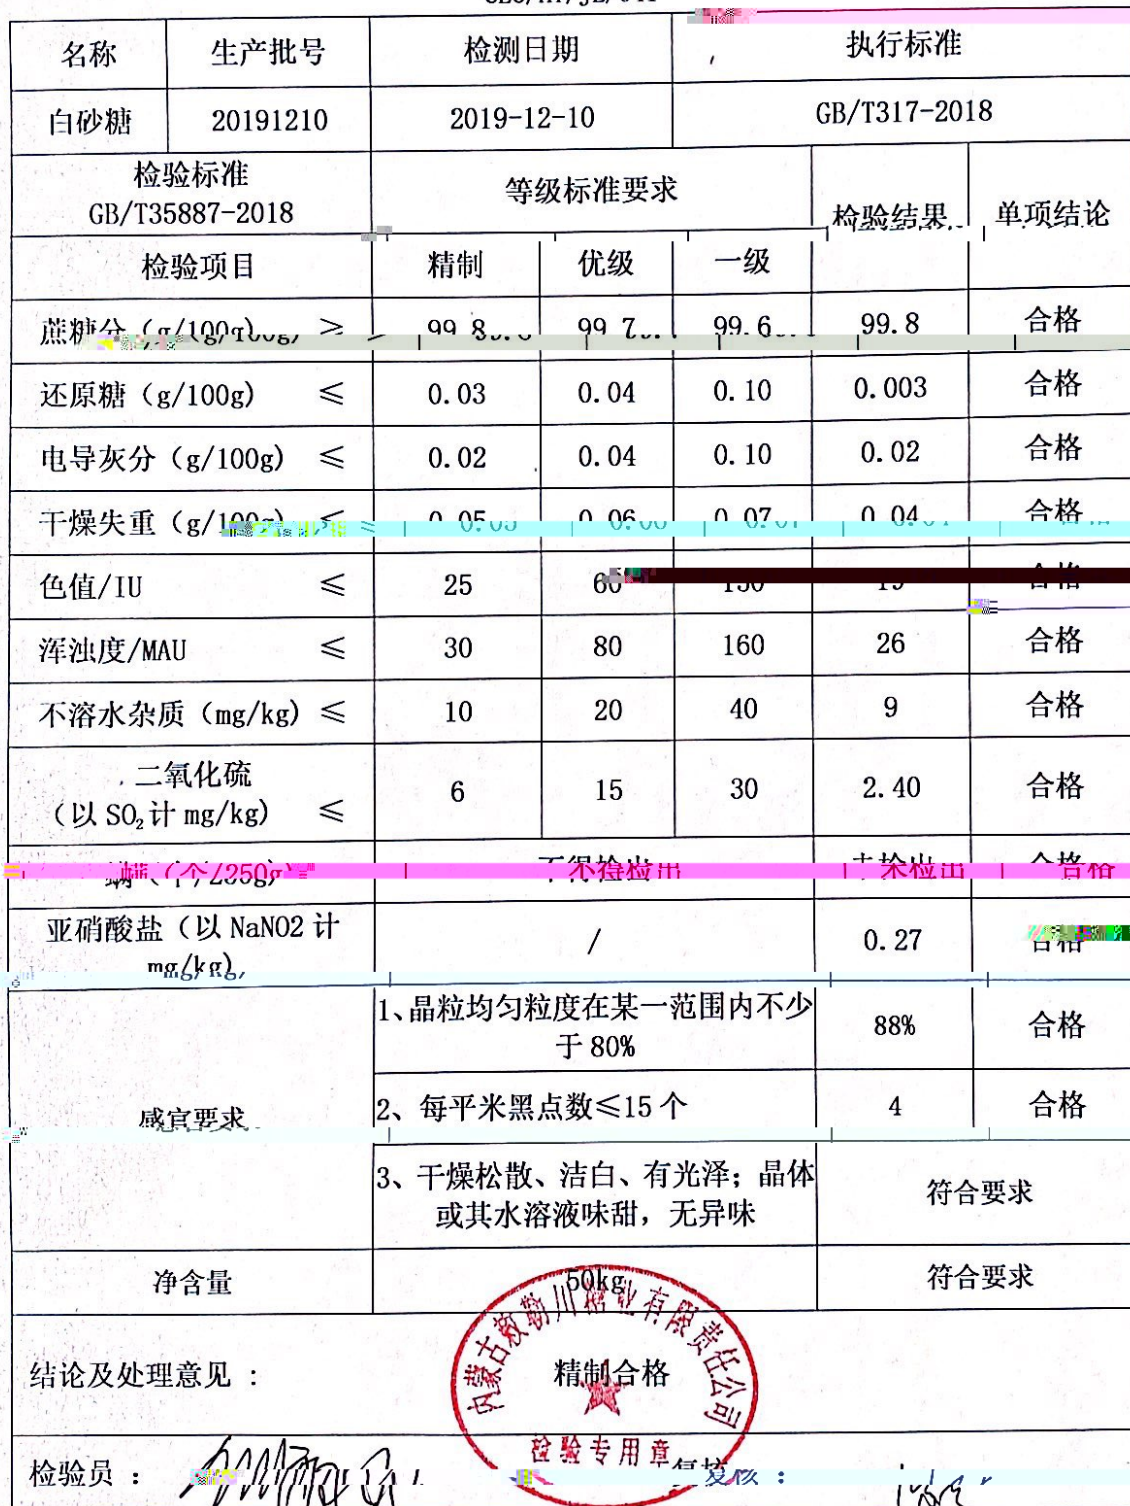 名称 生产批号 检测日期 执行标准
白砂糖 20191210 2019-12-10 GB/T317-2018
检验标准
GB/T35887-2018
等级标准要求 检验结果 单项结论
检验项目 精制 优级 一级
蔗糖分（g/100g） ≥ 99.8 99.7 99.6 99.8 合格
还原糖（g/100g） ≤ 0.03 0.04 0.10 0.003 合格
电导灰分（g/100g） ≤ 0.02 0.04 0.10 0.02 合格
干燥失重（g/100g） ≤ 0.05 0.06 0.07 0.04 合格
色值/IU ≤ 25 60 合格
浑浊度/MAU ≤ 30 80 160 26 合格
不溶水杂质（mg/kg） ≤ 10 20 40 9 合格
二氧化硫
（以SO₂计 mg/kg） ≤ 6 15 30 2.40 合格
螨（个/250g） 不得检出 未检出 合格
亚硝酸盐（以 NaNO2 计
mg/kg） / 0.27 合格
感官要求
1、晶粒均匀粒度在某一范围内不少
于80% 88% 合格
2、每平米黑点数≤15个 4 合格
3、干燥松散、洁白、有光泽；晶体
或其水溶液味甜，无异味 符合要求
净含量 50kg 符合要求
内蒙古敕勒川糖业有限责任公司
结论及处理意见 : 精制合格
检验专用章
检验员 : 复核 :